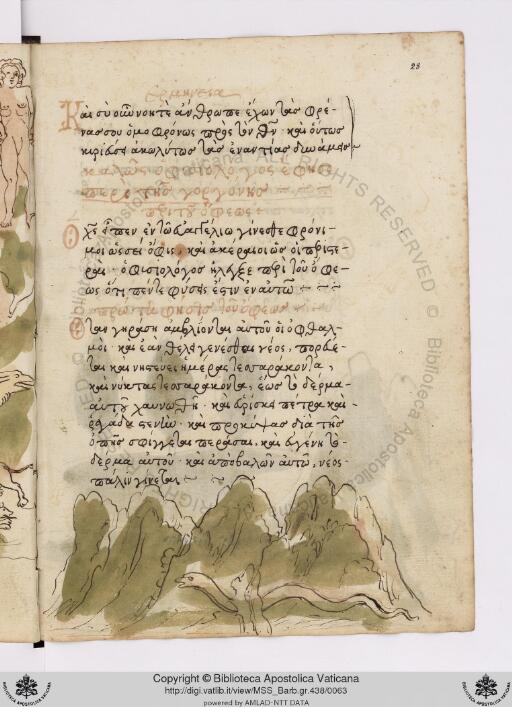 28
ἑρμηνεία
Καὶ σὺ οὖν νοητὲ ἄνθρωπε ἔχων τὰς φρέ-
νας σου ὁμοφρόνως πρὸς τὸν θν̄· καὶ οὕτως
ἀκολύτως τὰς ἐναντίας δυνάμεις
καλῶς ὁ φισιολόγος ἔφησε
περὶ τῆς γοργόνης
περὶ τοῦ ὄφεως
Ὁ χς̄ εἶπεν ἐν τῷ εὐαγγελίῳ γίνεσθε φρόνι-
μοι ὡσεὶ ὄφις, καὶ ἀκέραιοι ὡς οἱ περιστε-
ραί· ὁ φισιολόγος ἔλεξε περὶ τοῦ ὄφε-
ως ὅτι πέντε φύσης ἐστιν ἐν αυτῶ
πρώτη φύσις τοῦ ὄφεως
Ὅταν γηράση ἀμβλίονται αὐτοῦ οἱ ὀφθαλ-
μοί· καὶ ἐὰν θέλει γενέσθαι νέος, πορεύε-
ται καὶ νηστεύει ἡμέρας τεσσαράκοντα,
καὶ νύκτας τεσσαράκοντα, ἕως τὸ δέρμα
αὐτοῦ χαυνωθῆ· καὶ εὑρίσκει πέτρα καὶ
ραγάδα στενὴν· καὶ προκύψας διὰ τῆς
ὀπῆς σφίγγεται περάσαι, καὶ εὐγένη τὸ
δέρμα αὐτοῦ· καὶ ἀποβαλὼν αὐτῶ, νέος
πάλιν γίνεται
Copyright © Biblioteca Apostolica Vaticana
http://digi.vatlib.it/view/MSS_Barb.gr.438/0063
powered by AMLAD-NTT DATA